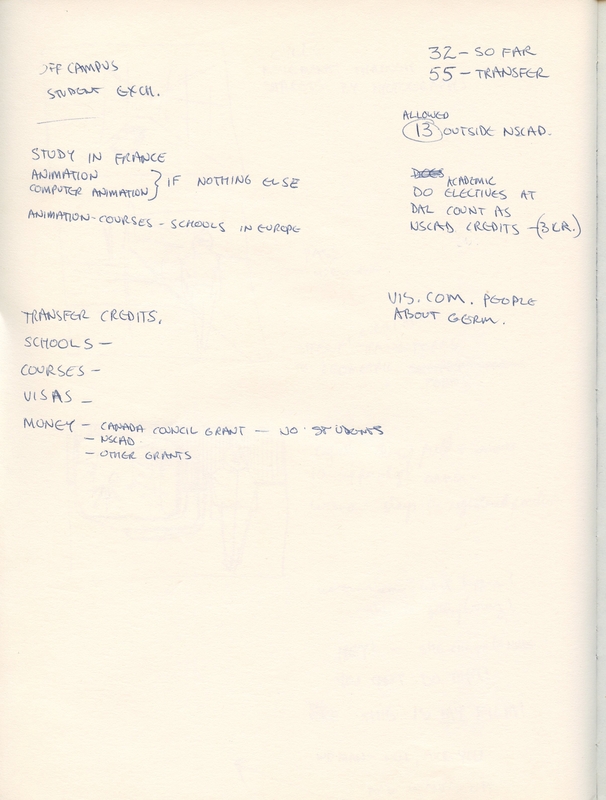 OFF CAMPUS
STUDENT EXCH.
STUDY IN FRANCE
ANIMATION
COMPUTER ANIMATION } IF NOTHING ELSE
ANIMATION-COURSES - SCHOOLS IN EUROPE
TRANSFER CREDITS.
SCHOOLS -
COURSES -
VISAS -
MONEY - CANADA COUNCIL GRANT - NO STUDENTS
- NSCAD
- OTHER GRANTS
32 - SO FAR
55 - TRANSFER
ALLOWED
13 OUTSIDE NSCAD.
ACADEMIC
DO ELECTIVES AT
DAL COUNT AS
NSCAD CREDITS - (3 CR.)
VIS. COM. PEOPLE
ABOUT GERM.